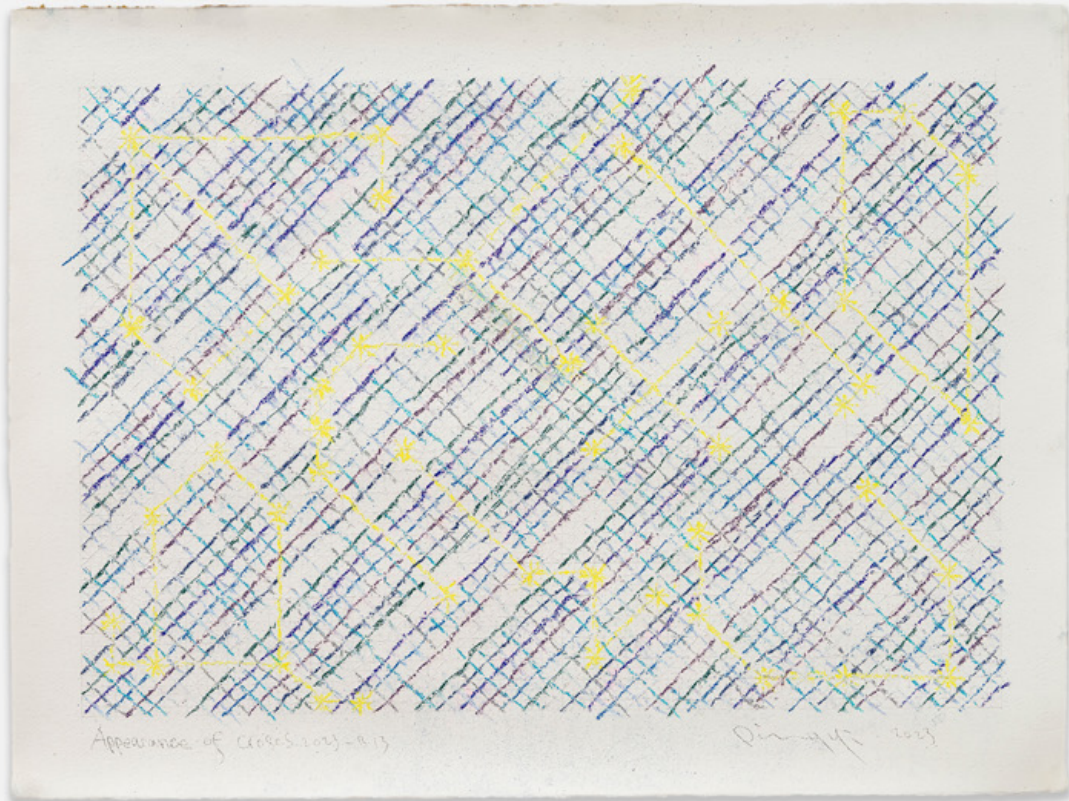 Appearance of crosses 2023-B13
Ding Yi 2023